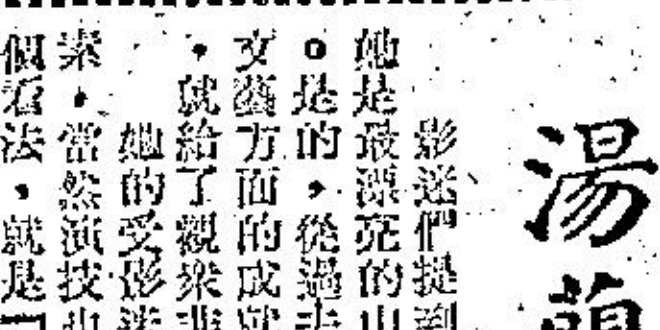 湯
影迷們提到
她是最漂亮的
。是的，從過去
文藝方面的成就
，就給了觀眾
她的受影迷
素，當然演技也
個看法，就是